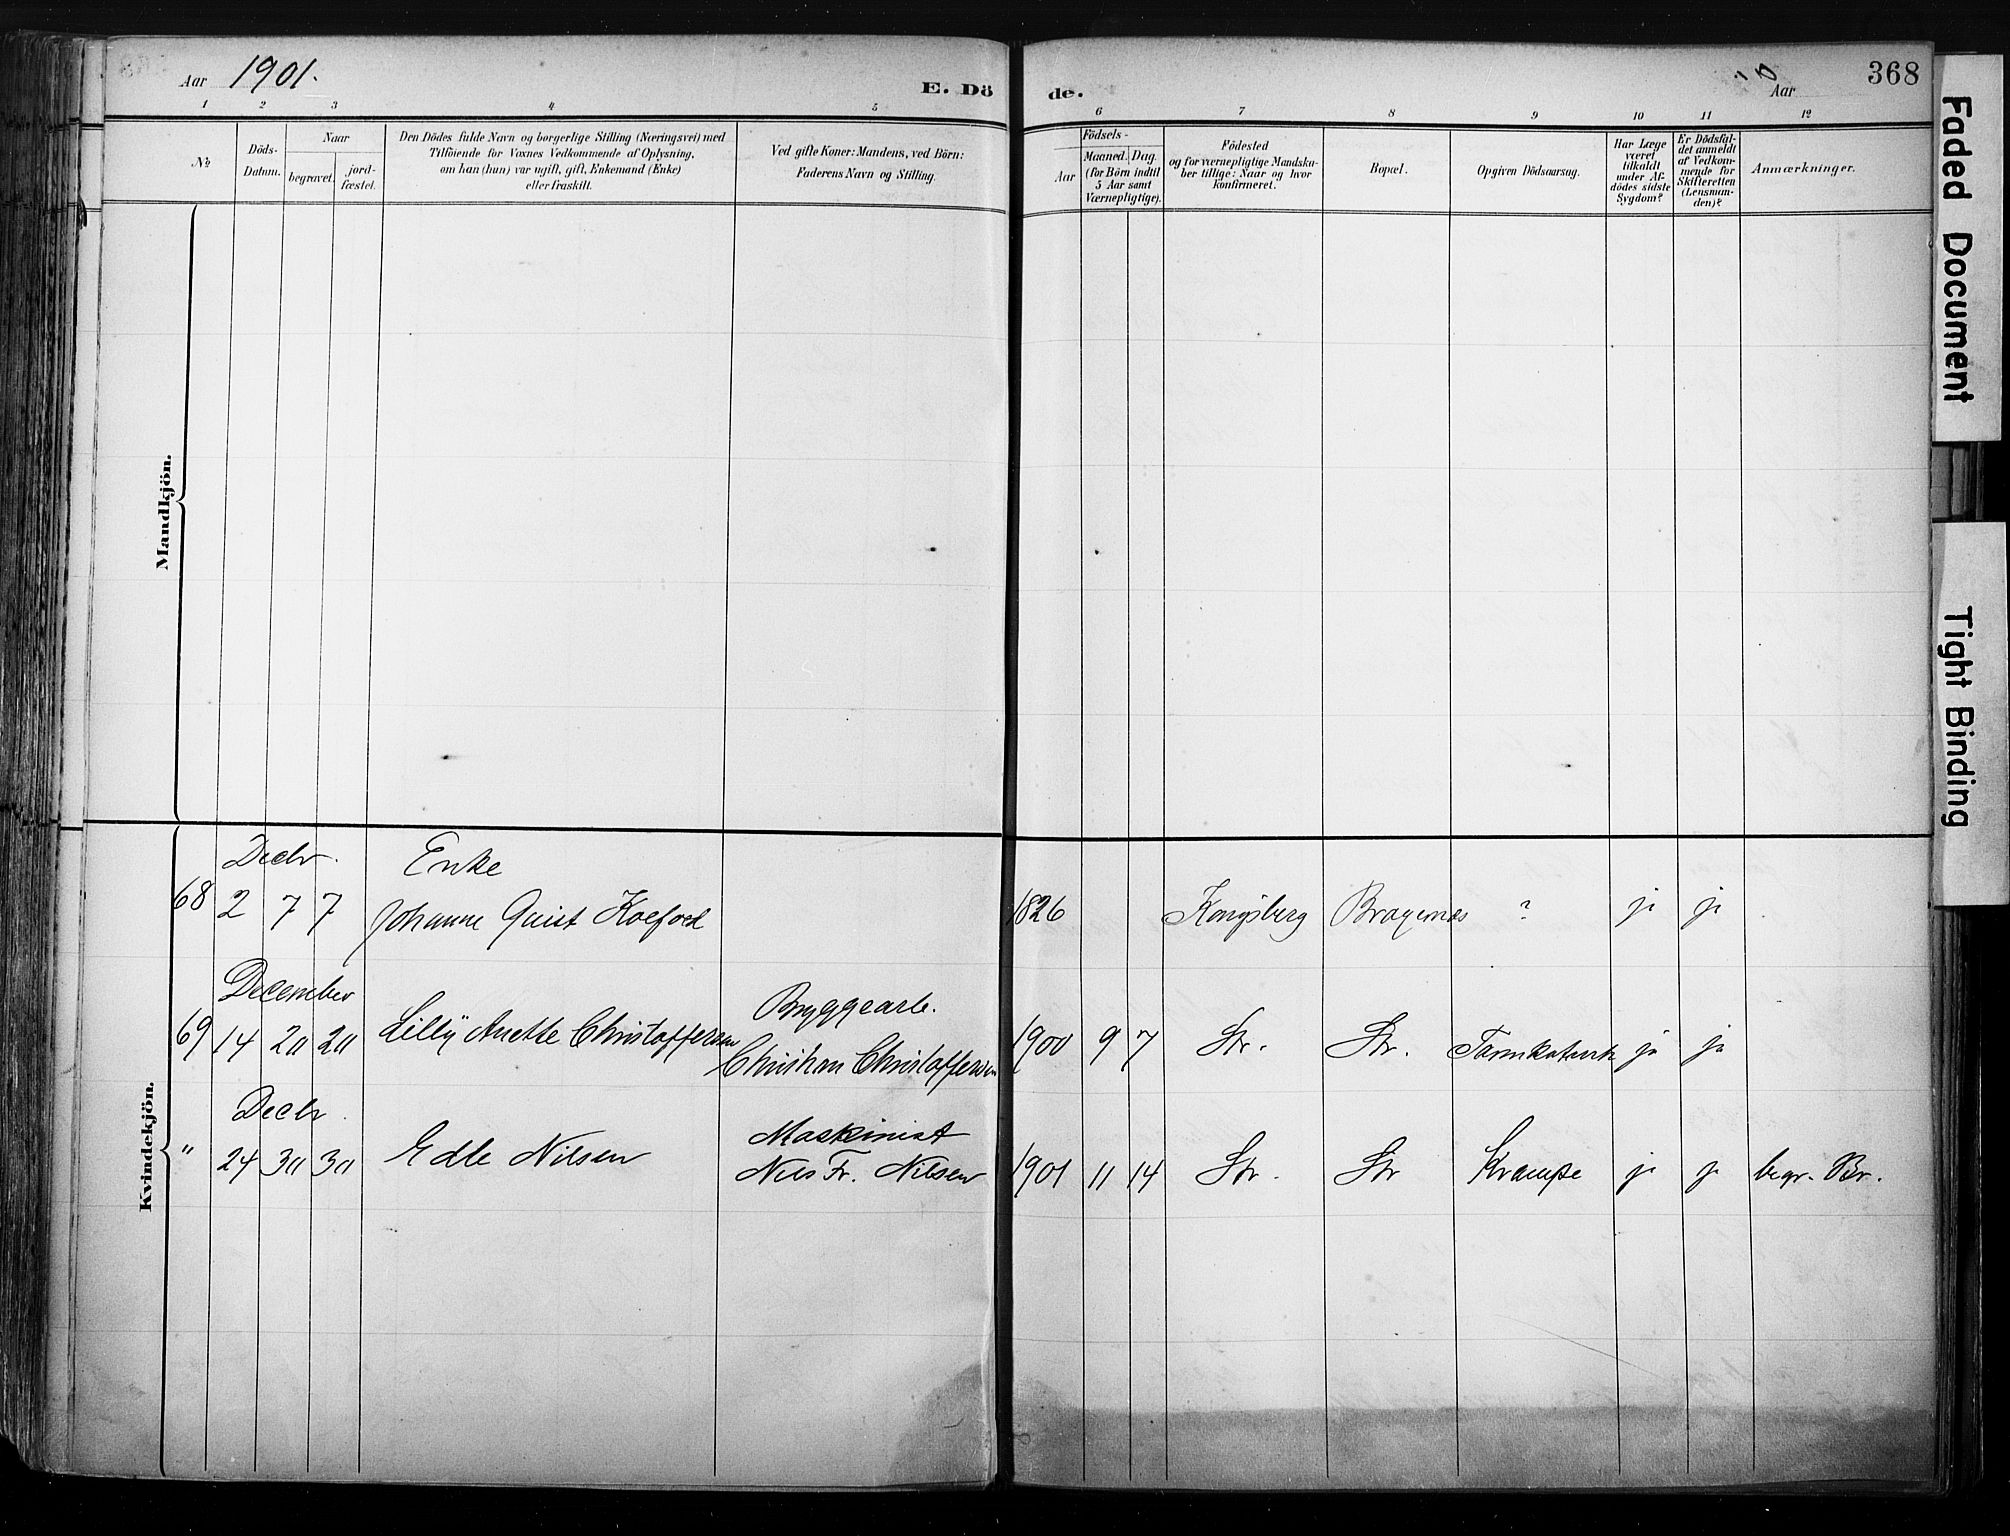 Aar 1901.
E. Dö
de.
Aar
368
1 2 3 4 5 6 7 8 9 10 11 12
No
Döds-
Datum.
Naar
begravet.
jord-
fæstet.
Den Dödes fulde Navn og borgerlige Stilling (Næringsvei) med
Tilföiende for Voxnes Vedkommende af Oplysning,
om han (hun) var ugift, gift, Enkemand (Enke)
eller fraskilt.
Ved gifte Koner: Mandens, ved Börn:
Faderens Navn og Stilling.
Födsels-
Aar
Maaned. Dag.
(for Börn indtil
5 Aar samt
Værnepligtige).
Födested
og for værnepligtige Mandska-
ber tillige: Naar og hvor
konfirmeret.
Bopæl.
Opgiven Dödsaarsag.
Har Læge
været
tilkaldt
under Af-
dödes sidste
Sygdom?
Er Dödsfal-
det anmeldt
af Vedkom-
mende for
Skifteretten
(Lensman-
den)?
Anmærkninger.
Mandkjön.
Kvindekjön.
Decbr. Enke
68 2 7 7 Johanne Quist Koefoed 1826 Kongsberg Bragernæs ? ja ja
December Bryggearb.
69 14 20 20 Lilly Anette Christoffersen Christian Christoffersen 1900 9 7 Str. Str. Tarmkatarrh ja ja
Decbr. Maskinist
" 24 30 30 Edle Nilsen Nils Fr. Nilsen 1901 11 14 Str. Str Krampe ja ja begr. Br.
Faded Document
Tight Binding